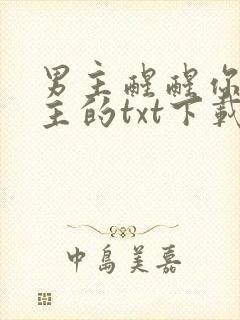 男主醒醒你
主的txt下载
中岛美嘉